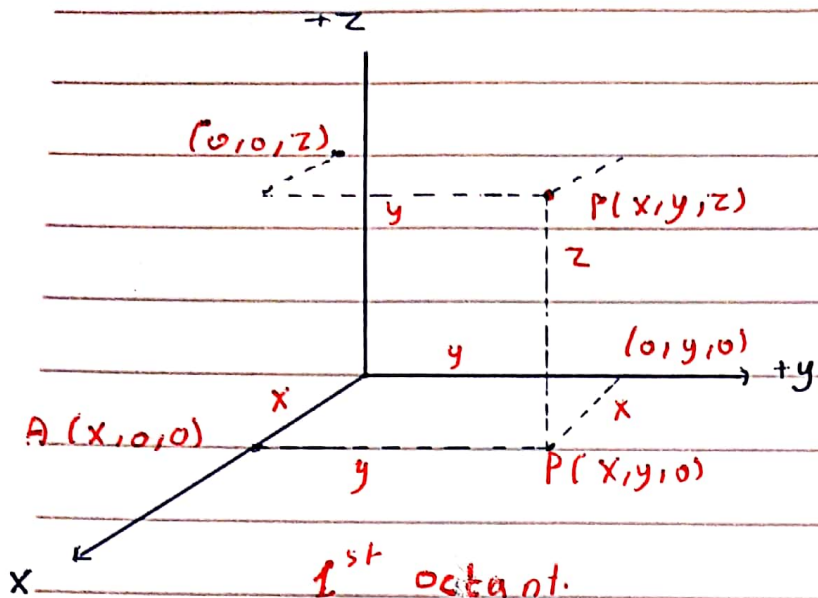 +z
(0,0,z)
y
P(x,y,z)
z
y
(0,y,0)
+y
x
x
A (x,0,0)
y
P(x,y,0)
x
1st octant.